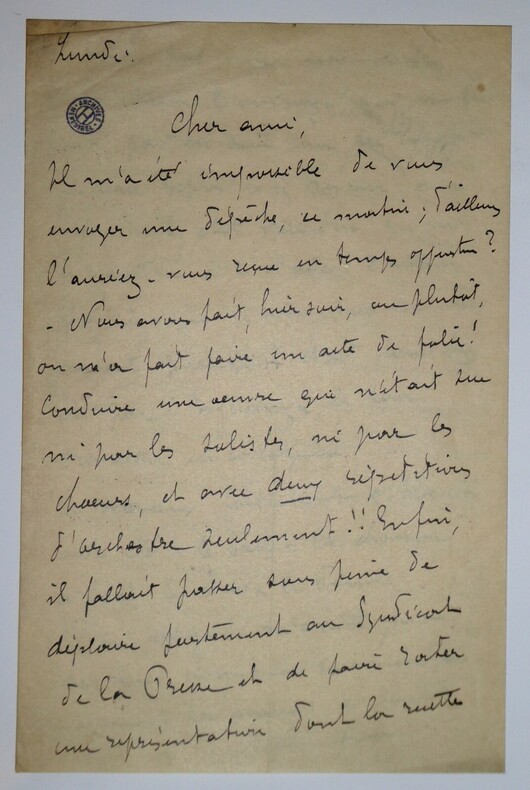 Lundi.
ARCHIVES
Cher ami,
Il m'a été impossible de vous
envoyer une dépêche, ce matin ; d'ailleurs
l'auriez-vous reçue en temps opportun ?
- Nous avons fait, hier soir, ou plutôt,
on m'a fait faire un acte de folie !
Conduire une oeuvre que n'était sue
ni par les solistes, ni par les
choeurs, et avec deux répétitions
d'orchestre seulement !! Enfin,
il fallait passer sous peine de
déplaire fortement au Syndicat
de la Presse et de faire rater
une représentation dont la recette